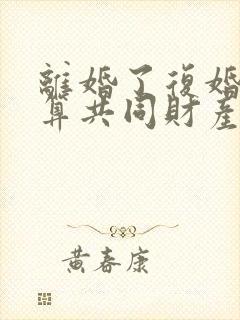 離婚了復婚
算共同財產
黃春康